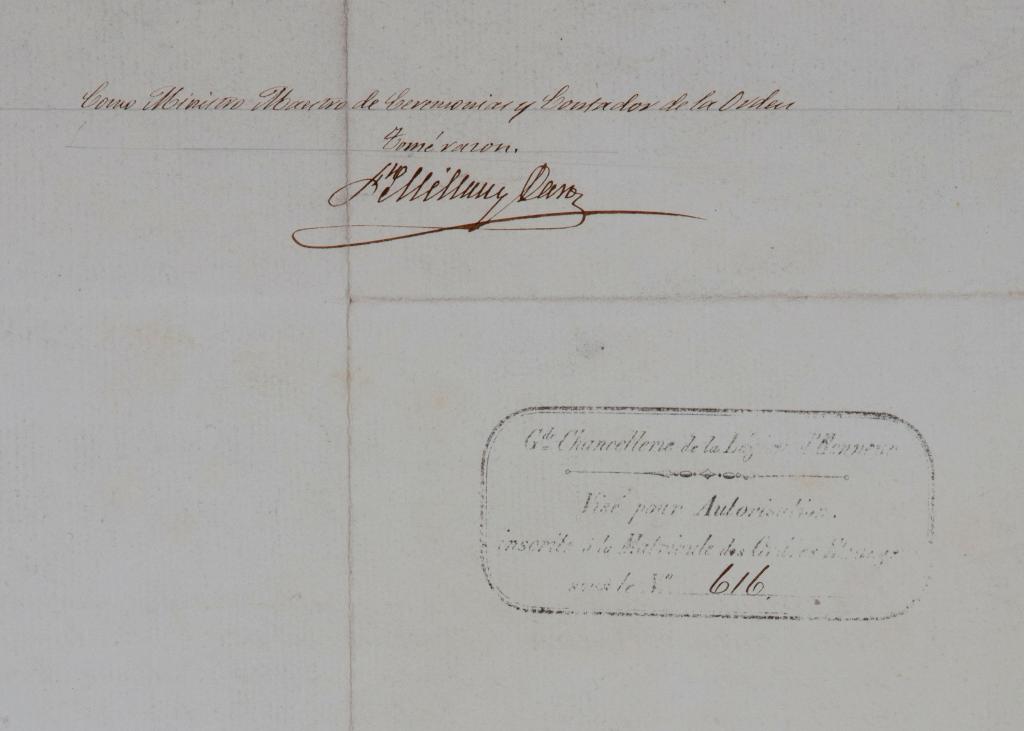 Como Ministro Maestro de Ceremonias y Contador de la Orden
Tomé razon.
Gde Chancellerie de la Légion d'Honneur
Visé pour Autorisation.
inscrite à la Matricule des Ordres Etrange
sous le No 616.